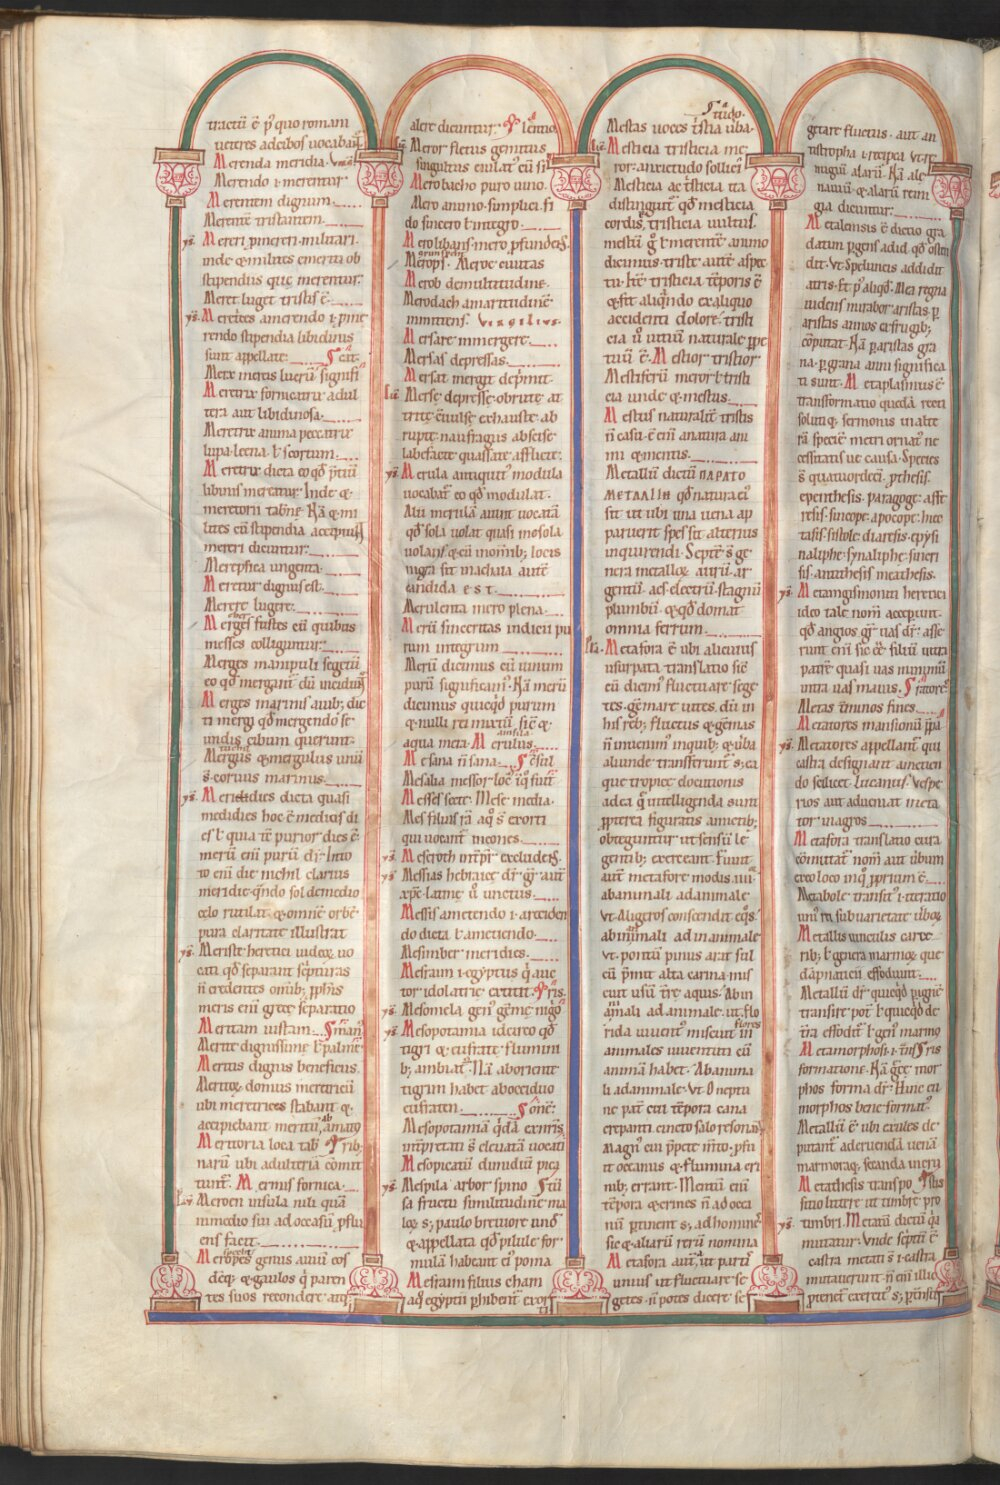 tractū ē p̄ quo romani
ueteres ad cibos uocabant
Merenda meridia.
Merendo .i. merentur
Merentem dignum.
Merentē tristantem.
ys. Mereri, p̄mereri. militari.
inde & milites emeriti ob
stipendius que merentur.
Meret luget tristis ē.
ys. Meretrices a merendo .i. p̄me
rendo stipendia libidinis
sunt appellate.
Merx mercis lucrū signifi
Meretrix fornicatrix adul
tera aut libidinosa.
Meretrix anima peccatrix
lupa. leena. ł scortum.
Meretrix dicta eo qđ p̄tiū
libinis meretur. Inde &
meretorii tab̄ne. Nā & mi
lites cū stipendia accipiunt
mereri dicuntur.
Merepsica ungenta.
Meretur dignus est.
Merere lugere.
Merges fustes cū quibus
messes colliguntur.
Merges manipuli segetū
eo qđ mergant dū incidunt
Merges marinis auib; dic
ti mergi qđ mergendo se
undis cibum querunt.
Mergus & mergulus unū
s. coruus marinus.
ys. Meridies dicta quasi
medidies hoc ē medius di
es ł quia tē purior dies ē.
merū enī purū dr̄. In to
to enī die nichil clarius
meridie. qn̄do sol de medio
celo rutilat & omnē orbē
pura claritate illustrat
ys. Meriste heretici iudeoꝝ uo
cati qđ separant scripturas
n̄ credentes omib; p̄phis
meris enī grece separatio
Meritam iustam.
Merite dignissime
Meritus dignus beneficiis.
Meritoꝝ domus meretricū
ubi meretrices stabant &
accipiebant meritū
Meritoria loca tab̄
narū ubi adulteria cōmit
tunt. Mermis fornica.
Meroen insula nili quā
in medio sui ad occasū p̄flu
ens facit.
Meropes genus auiū eos
dēq; & gaulos q̄ paren
tes suos recondere atq;
alere dicuntur.
Meror fletus gemitus
singultus eiulat' cū si
Merobacho puro uino.
Mero animo. simplici. fi
do sincero ł integro.
Merolibans. mero p̄fundens.
Merops. Meroe ciuitas
Merob de multitudine.
Merodach amaritudinē
immittens. Virgilius.
Mersare inmergere.
Mersas depressas.
Mersat mergit dep̄mit.
Merse depresse. obrute at
trite. euulse. exhauste. ab
rupte. naufragus. abscise
labefacte quassate afflicte.
ys. Merula antiquit' modula
uocabat' eo qđ modulat.
Alii merulā aiunt uocatā
qđ sola uolat quasi mesola
uolans & cū in omib; locis
nigra sit in achaia autē
candida est.
Merulenta mero plena.
Merū sinceritas indicii pu
rum integrum
Merū dicimus cū uinum
purū significam'. Nā merū
dicimus quicqđ purum
& nulli rei mixtū. sic &
aqua mera. Merulus.
Mesana n̄ sana.
Mesalia messor
Messes secte. Mese media.
Mes filius rā a q̄ s̄ exorti
qui uocant meones.
ys. Meseroth int̄pr̄ excludens.
ys. Messias hebraice dr̄. gr̄ aut
xp̄c. latine ū unctus.
Messis a metendo .i. a reciden
do dicta ł a metiendo.
Mesimber meridies.
Mesraim .i. egyptus q̄ auc
tor idolatrie extitit.
ys. Mesomela gen' gēme nigrē
ys. Mesopotamia idcirco qđ
tigri & eufrate flumini
b; ambiat'. Nā ab oriente
tigrin habet ab occiduo
eufraten.
Mesopotamiā q̄dā ex nr̄is
int̄pretati s̄ eleuatā uocati
Mesopicatū dimidiū pica
ys. Mespila arbor spino
sa fructu similitudine ma
loꝝ s; paulo breuiore und
& appellata qđ pilule for
mulā habeant ei' poma
Mesraim filius cham
a q̄ egyptii p̄hibent exor
ti
Mestas uoces tristia uba.
Mesticia tristicia me
ror. anxietudo sollici
Mesticia ac tristicia ita
distinguit qđ mesticia
cordis, tristicia uultus.
mestū ḡ ł merentē animo
dicimus. triste autē aspec
tu. hec tristicia tēporis ē
& fit aliqn̄do ex aliquo
accidenti dolore. tristi
cia ū uitiū naturale ppe
tuū ē. Mestior tristior
Mestiferū meror ł tristi
cia unde & mestus.
Mestus naturalit' tristis
n̄ casu. ē enī a natura ani
mi & mentis.
Metallū dictū ΠΑΡΑΤΟ
ΜΕΤΑΛΛΙΝ qđ natura ei'
sit ut ubi una uena ap
paruerit spes sit alterius
inquirendi. Septē s̄ ge
nera metalloꝝ aurū. ar
gentū. aes. electrū. stagnū
plumbū & qđ domat
omnia ferrum.
Metafora ē ubi alicuius
usurpata translatio sic
cū dicim' fluctuare sege
tes. gēmare uites. dū in
his reb; fluctus & gēmas
n̄ inuenim' in quib; & uba
aliunde transferunt. s; ea
que tropice locutionis
ad ea q̄ intelligenda sunt
p̄pterea figuratis amictib;
obteguntur ut sensū le
gentib; exerceant. Fiunt
autē metafore modis .iiii.
ab animali ad animale
ut. Aligeros conscendit eq̄s.
ab inanimali ad inanimale
ut. pontū pinus arat sul
cū p̄mit alta carina. mis
cuit usū t̄re aquis. Ab in
animali ad animale. ut. flo
rida uiuenti' miscuit in flores
animales uiuentiū cū
animā habet. Ab anima
li ad inanimale. ut. O neptu
ne pat' cui tēpora cana
crepanti cincto salo resonāt
magn' cui p̄petē mēto. p̄fu
it oceanus & flumina cri
nib; errant. Mentū enī
tēpora & crines n̄ ad ocea
nū p̄tinent s; ad homine
sic & aliarū rerū nomina
Metafora aut aut parti
unius ut fluctuare se
getes. n̄ potes dicere se
getare fluctus. aut an
tistropha .i. recipca ut re
migiū alarū. Nā ale
nauiū & alarū remi
gia dicuntur.
Metalensis ē dictio gra
datim p̄gens ad id qđ ostē
dit. Vt. Speluncis addidit
atris. Et p̄ aliqđ. Mea regna
uidens mirabor aristas. p̄
aristas annos ex frugib;
cōputat. Nā p̄ aristas gra
na. p̄ grana anni significa
ti sunt. Metaplasmus ē
transformatio quedā recti
soluti q̄ sermonis in alte
rā speciē metri ornat' ne
cessitatis ue causa. Species
s̄ quattuordeci. p̄thesis.
epenthesis. paragoge. aff
resis. sincope. apocope. hiec
tasis. sistole. diaresis. epysi
naliphe. synaliphe. sineri
sis. antithesis. meathesis.
ys. Metangismoniti heretici
ideo tale nom̄ acceperunt.
qđ angios gr̄ uas dr̄. asse
runt enī sic eē filiū intra
patrē quasi uas minimū
intra uas maius.
Metas t̄minos fines.
Metatores mansionū p̄pa.
ys. Metatores appellant qui
castra designant a metien
do scilicet. Lucanus. Vespe
rios aut adueniat meta
tor in agros
Metafora translatio cura
cōmutat' nom̄ aut ūbum
ex eo loco in q̄ p̄prium ē.
Metabole transit' .i. iteratio
uni' rei sub uarietate ūboꝝ
Metallis uinculis carce
rib; ł genera marmoꝝ que
dāpnaticii effodiunt.
Metallū dr̄ quicqđ p̄ignē
transire pot' ł quicqđ de
t̄ra effodit' ł gen' marmo
Metamorphosi .i. t̄ns
formatione. Nā grece mor
phos forma dr̄. Hinc eu
morphos bene format'.
Metallū ē ubi exules de
putant' ad eruendā uenā
marmoraq; secanda
Metathesis transpo
sitio littere ut timbre pro
timbri. Metarū dictū q̄a
mutatur. Vnde septū ē
castra metati s̄ .i. castra
mutauerunt. n̄ enī illic
p̄manet exercit' s; p̄transit